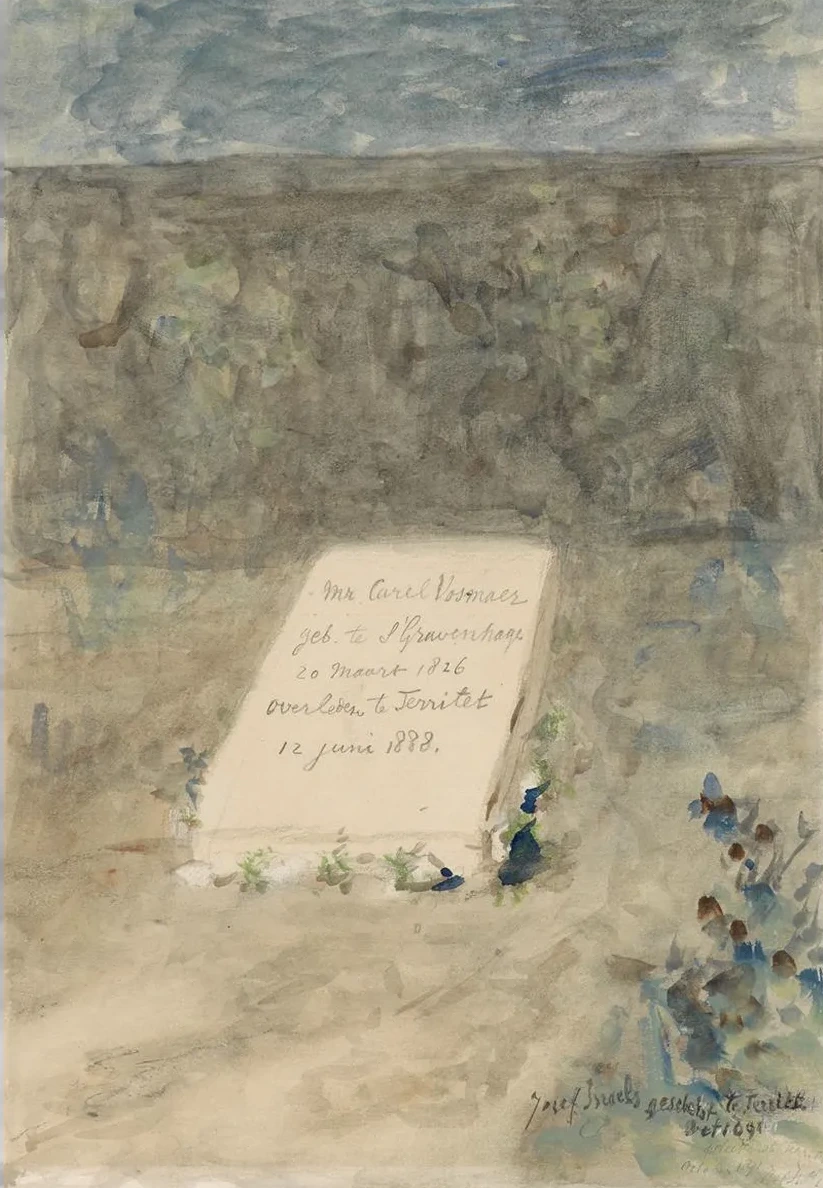 Mr. Carel Vosmaer
geb. te S'Gravenhage
20 Maart 1826
overleden te Territet
12 juni 1888.
Josef Israels geschetst te Territet